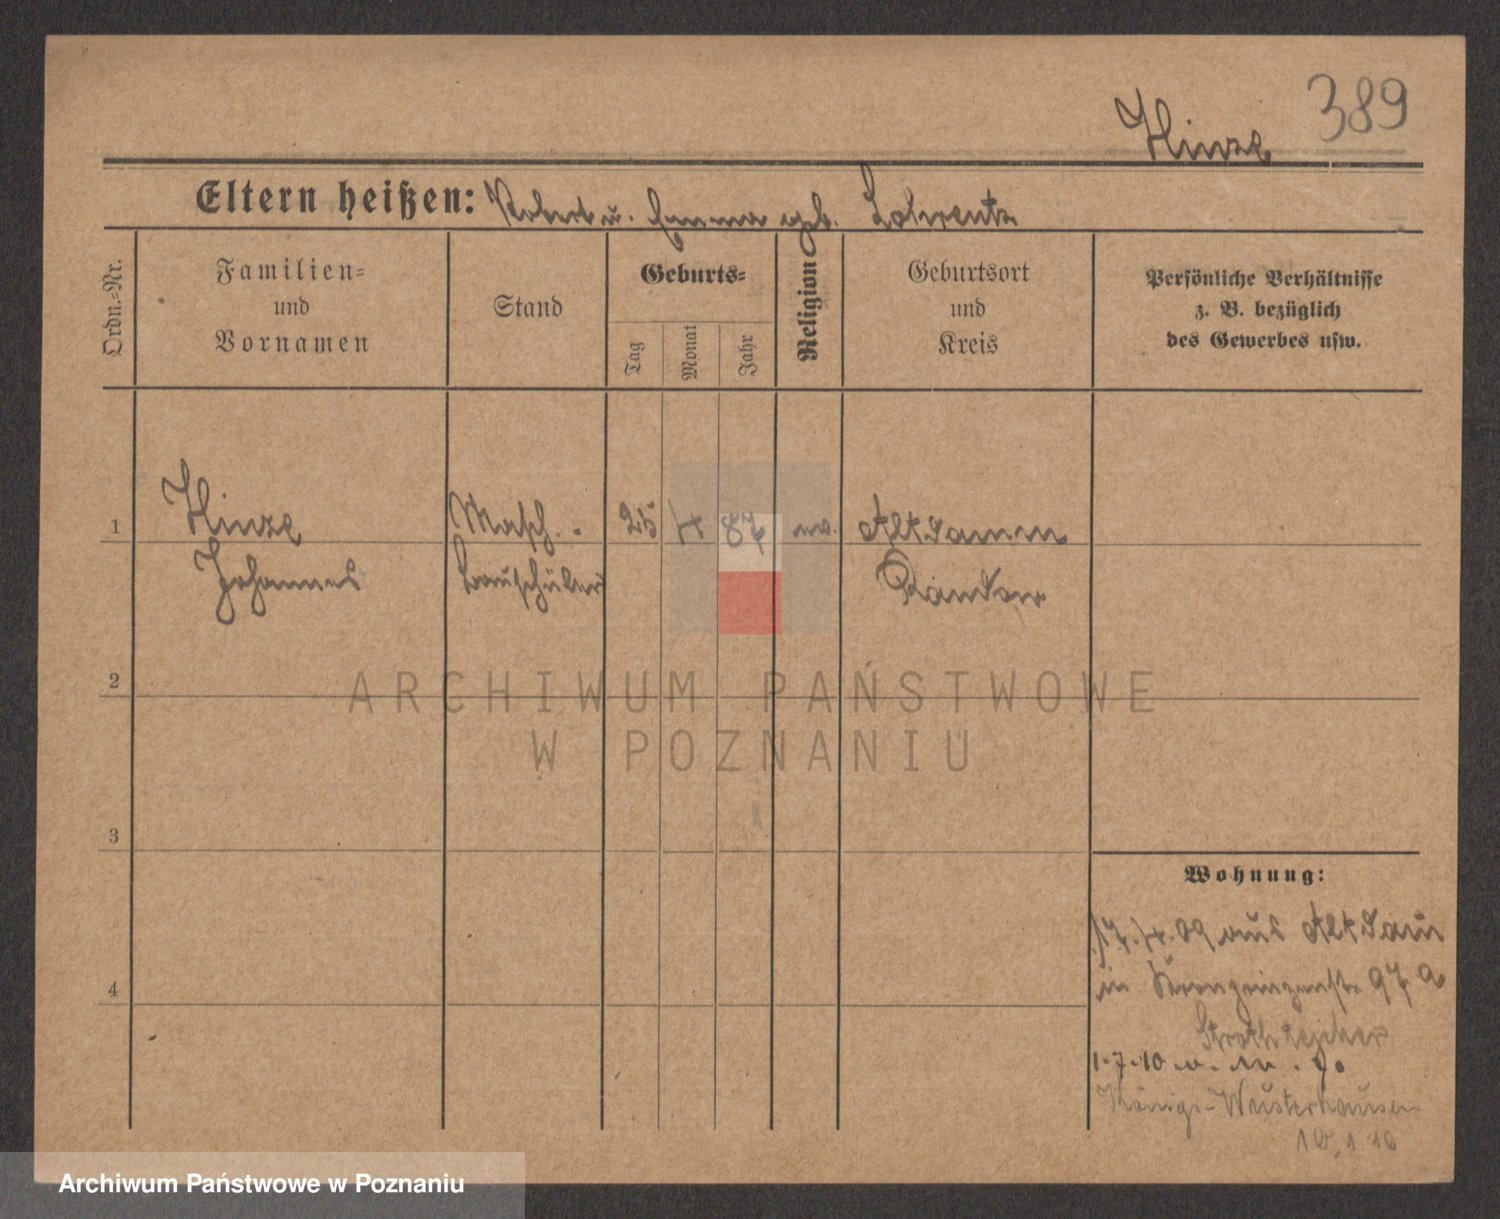 389
Hinze
Eltern heißen: Robert u. Emma geb. Lohrentz
Ordn.=Nr.
Familien=
und
Vornamen
Stand
Geburts=
Tag
Monat
Jahr
Religion
Geburtsort
und
Kreis
Persönliche Verhältnisse
z. B. bezüglich
des Gewerbes usw.
1
Hinze
Johannes
Masch.-
bauschüler
25
4
87
ev.
Altdamm
Randow
2
ARCHIWUM PAŃSTWOWE
W POZNANIU
3
4
Wohnung:
17.4.09 aus Altdam
in Kronprinzenstr 97 a
1.7.10
Königs-Wusterhausen
Archiwum Państwowe w Poznaniu